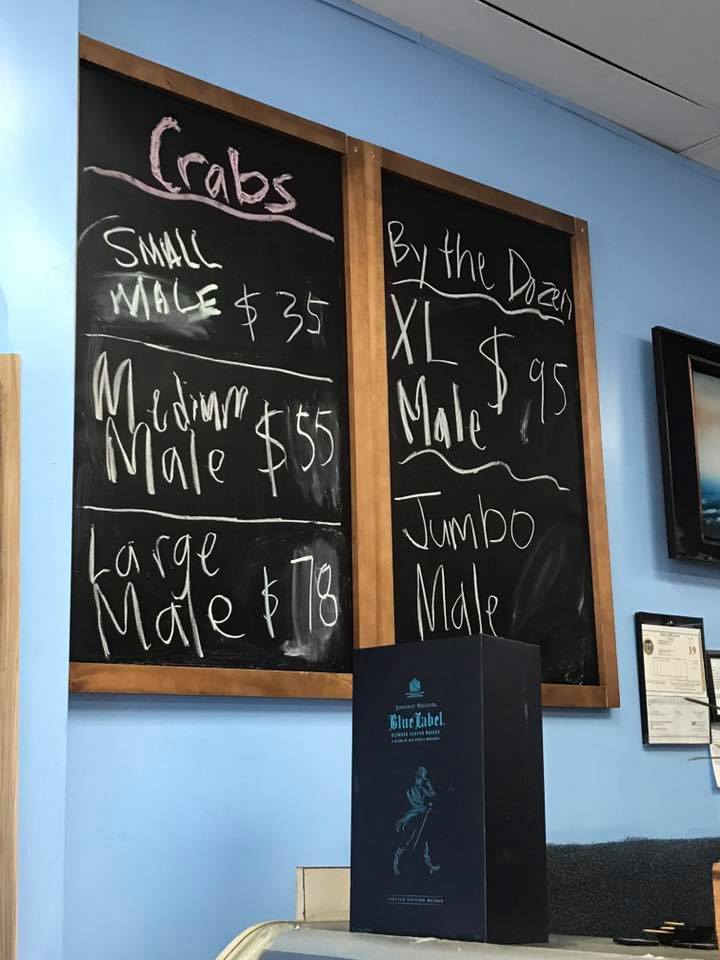 Crabs
SMALL
MALE $ 35
Medium
Male $ 55
Large
Male $ 78
By the Dozen
XL
Male $ 95
Jumbo
Male
JOHNNIE WALKER.
Blue Label
BLENDED SCOTCH WHISKY
19